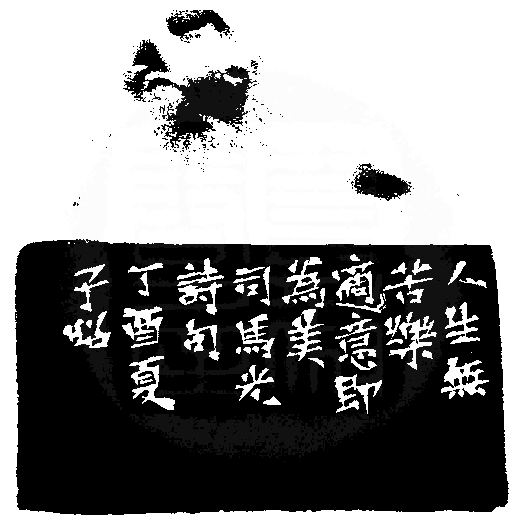 人生無
苦樂
適意即
為美
司馬光
詩句
丁酉夏
子